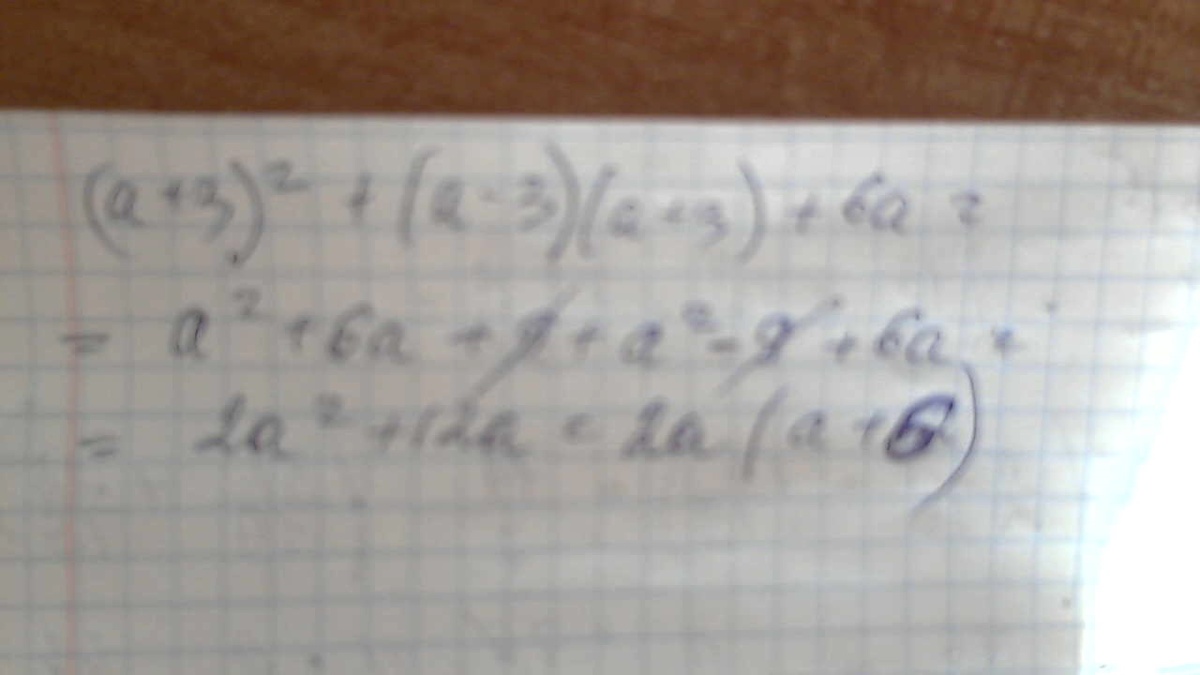 (a+3)² + (a-3)(a+3) + 6a =
= a² + 6a + 9 + a² - 9 + 6a =
= 2a² + 12a = 2a (a+6)